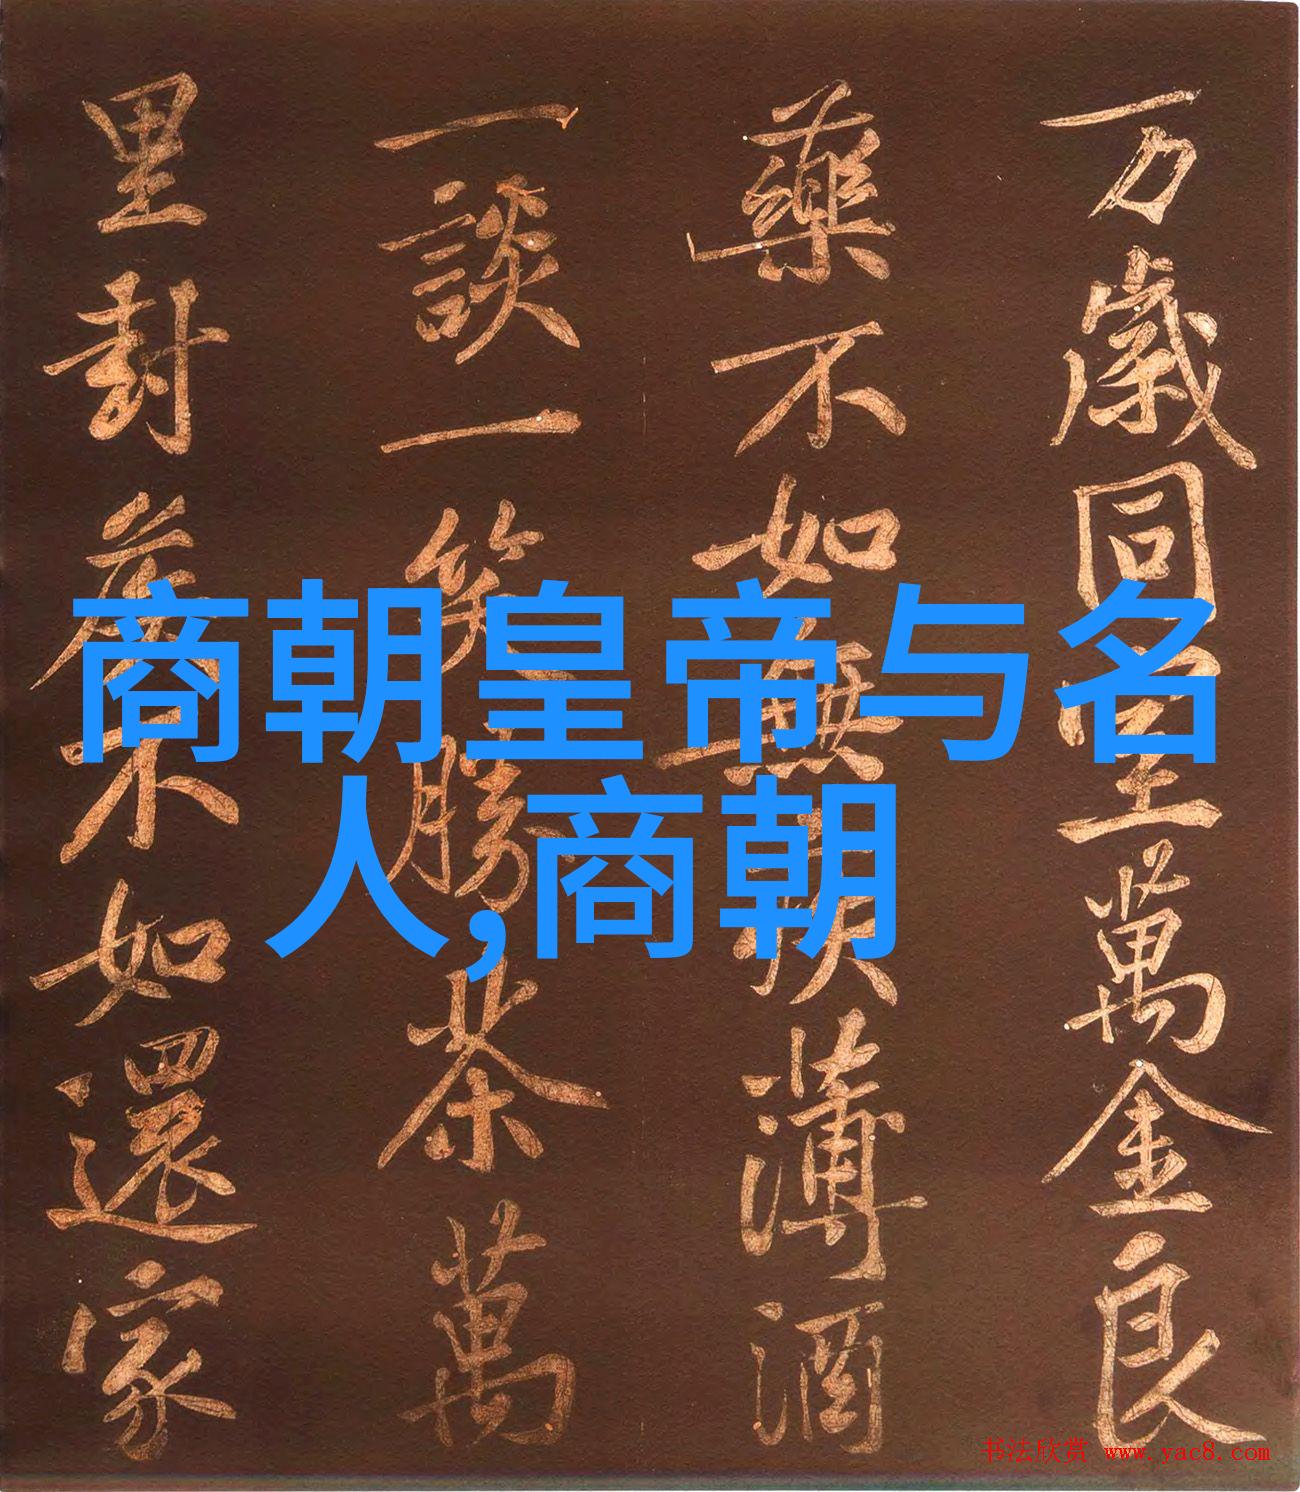 商朝皇帝与名
人,商朝
万歲同室萬金良
藥不如無疾薄酒
一談一笑勝茶萬
里封侯不如還家
书法欣赏 www.yac8.com